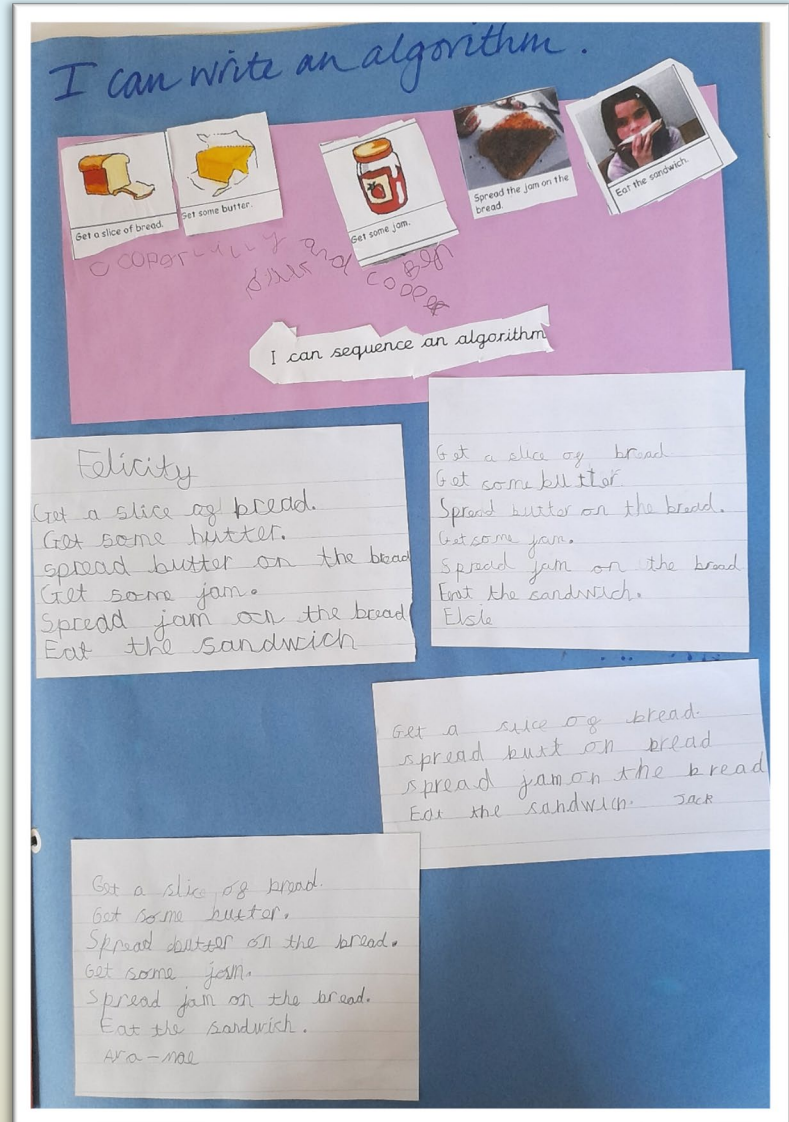 I can write an algorithm.
Get a slice of bread.
Get some butter.
Get some jam.
Spread the jam on the
bread.
Eat the sandwich.
and
I can sequence an algorithm
Felicity
Get a slice of bread.
Get some butter.
spread butter on the bread
Get some jam.
Spread jam on the bread
Eat the sandwich
Get a slice of bread
Get some butter
Spread butter on the bread.
Get some jam.
Spread jam on the bread
Eat the sandwich.
Elsie
Get a slice of bread.
spread butt on bread
spread jam on the bread
Eat the sandwich. Jack
Get a slice of bread.
Get some butter.
Spread butter on the bread.
Get some jam.
Spread jam on the bread.
Eat the sandwich.
Ava-mae